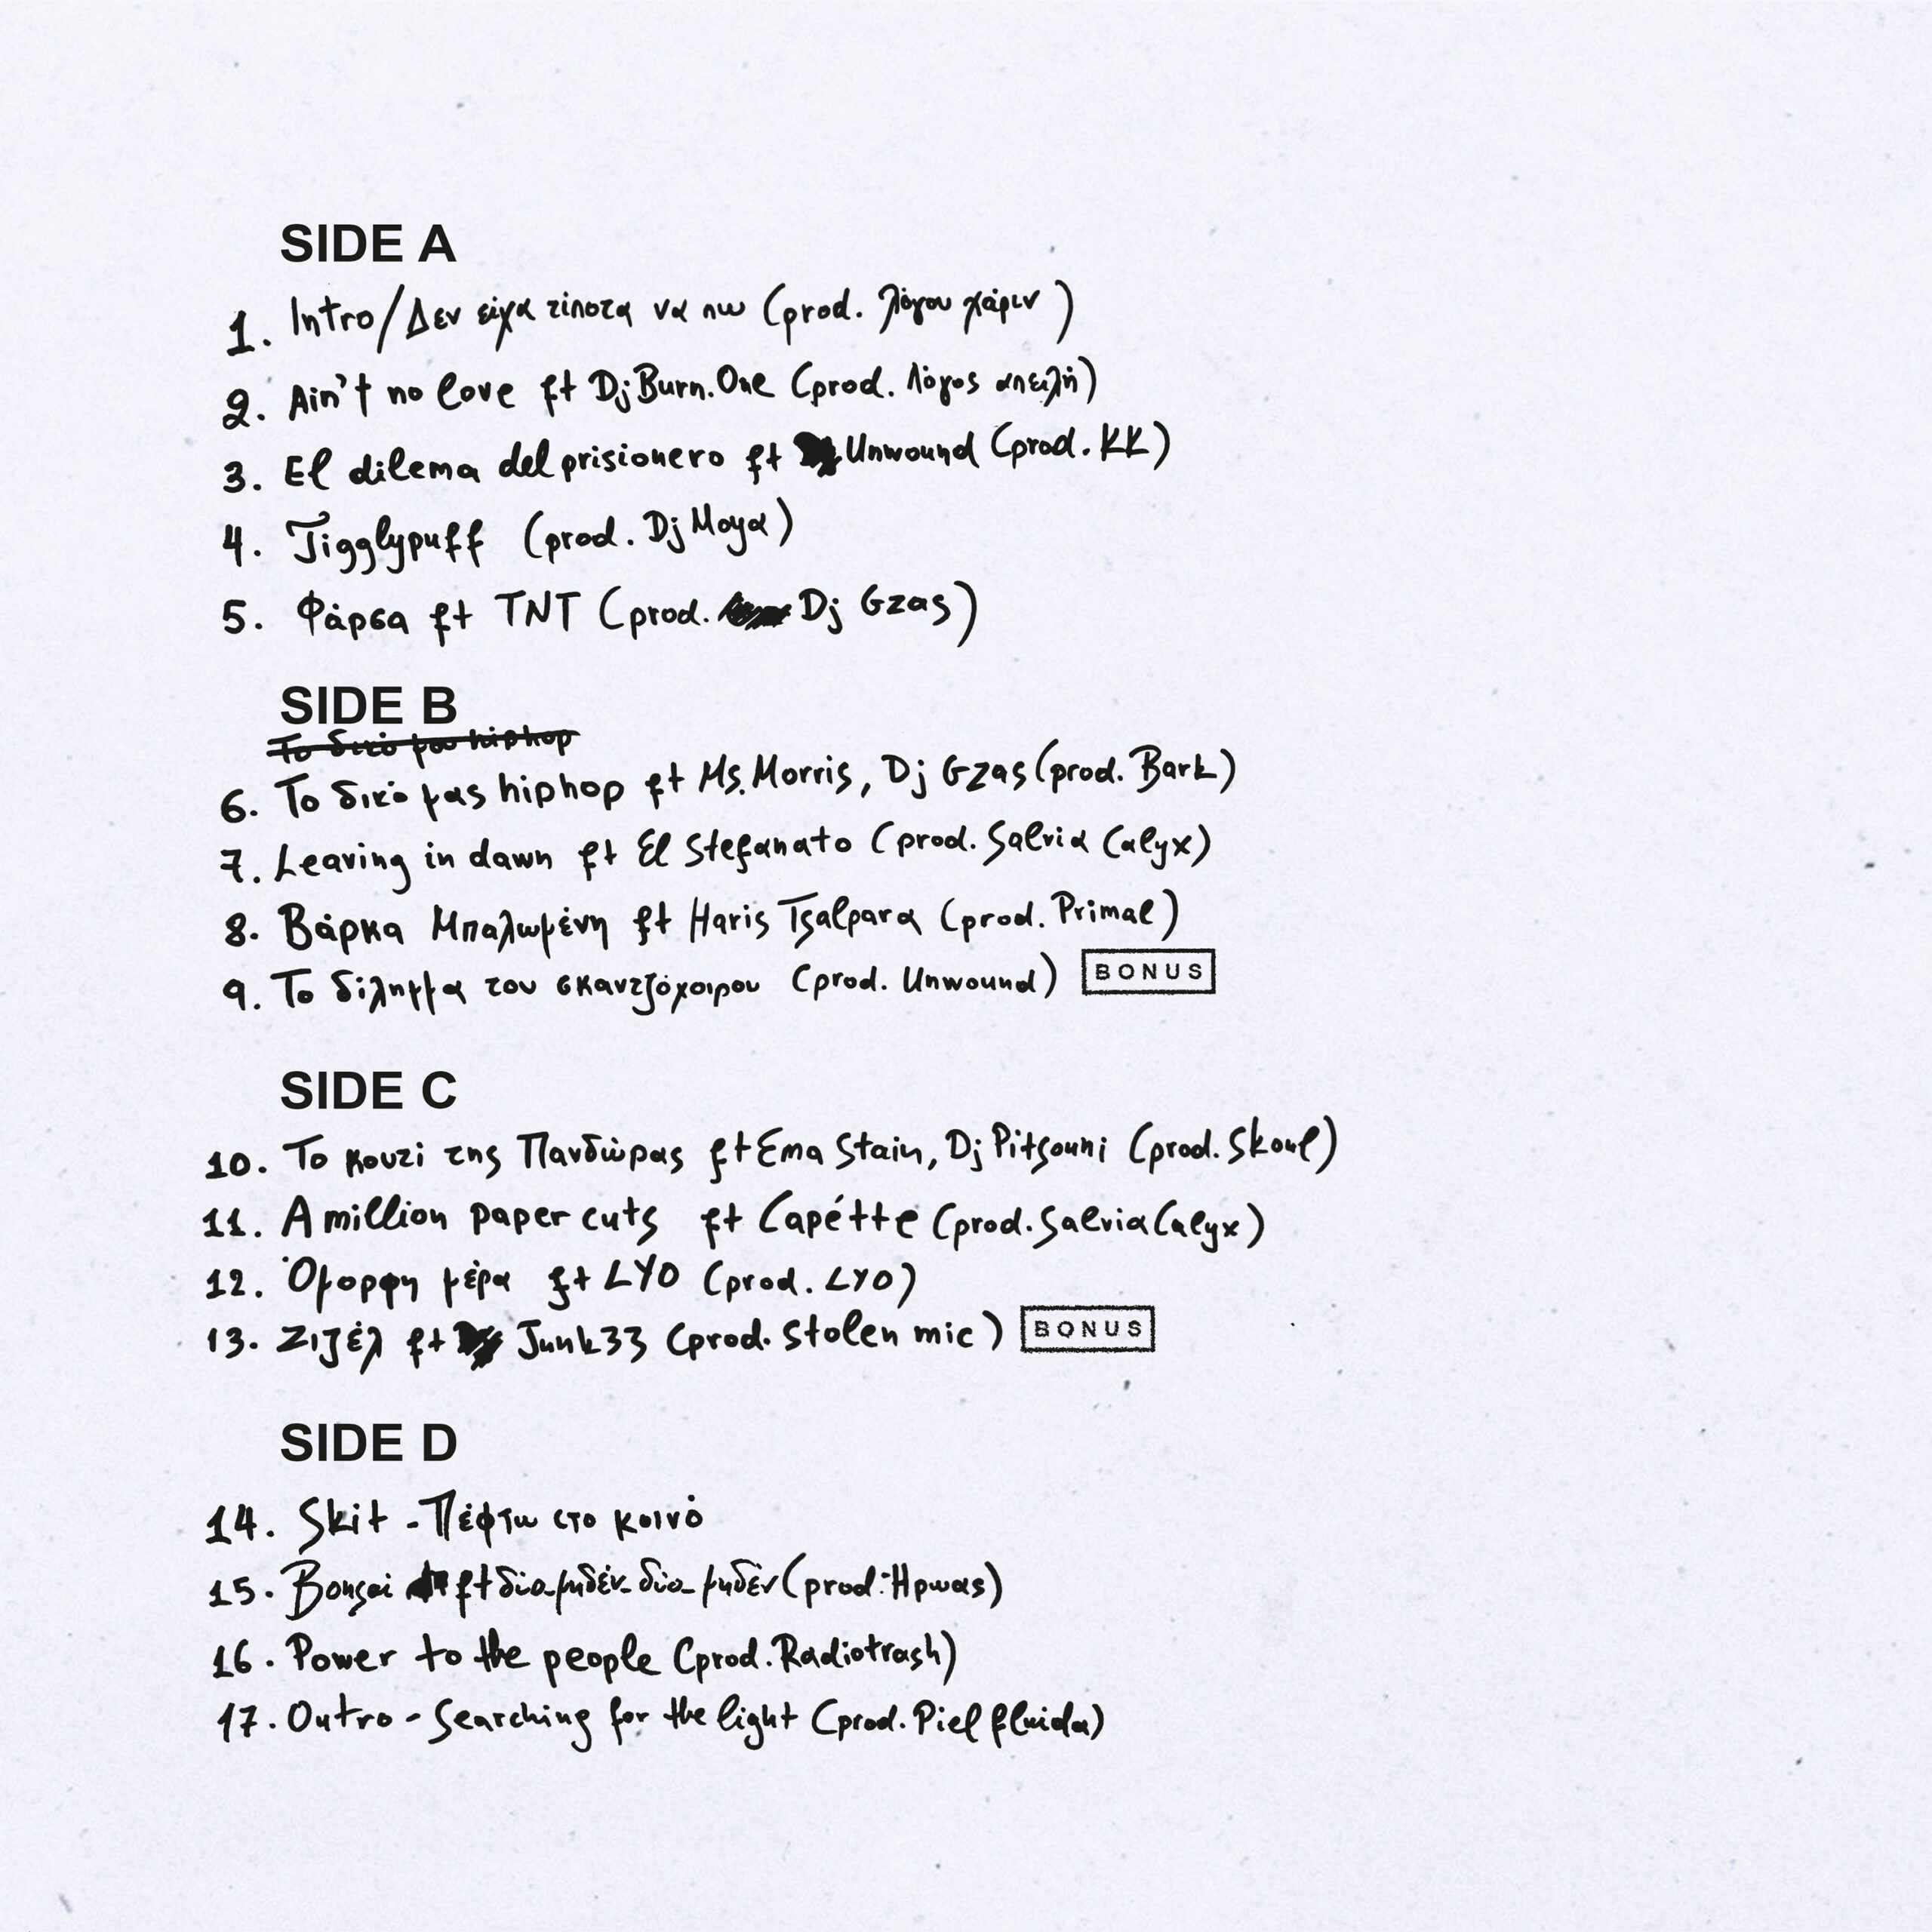 SIDE A
1. Intro/Δεν είχα τίποτα να πω (prod. λόγου χάριν)
2. Ain't no love ft Dj Burn.One (prod. Λόγος απειλή)
3. El dilema del prisionero ft Unwound (prod. KK)
4. Jigglypuff (prod. Dj Moya)
5. Φάρσα ft TNT (prod. Dj Gzas)
SIDE B
Το δικό μου hiphop
6. Το δικό μας hiphop ft Ms. Morris, Dj Gzas (prod. Bark)
7. Leaving in dawn ft El Stefanato (prod. Salvia Calyx)
8. Βάρκα Μπαλωμένη ft Haris Tsalpara (prod. Primal)
9. Το δίλημμα του σκαντζόχοιρου (prod. Unwound) BONUS
SIDE C
10. Το κουτί της Πανδώρας ft Ema Stain, Dj Pitsouni (prod. Skoul)
11. A million paper cuts ft Capétte (prod. Salvia Calyx)
12. Όμορφη μέρα ft LYO (prod. LYO)
13. Ζιζέλ ft Junk33 (prod. Stolen mic) BONUS
SIDE D
14. Skit - Πέφτω στο κοινό
15. Bonsai ft δύο_μηδέν_δύο_μηδέν (prod. Ήρωας)
16. Power to the people (prod. Radiotrash)
17. Outro - Searching for the light (prod. Piel fluida)